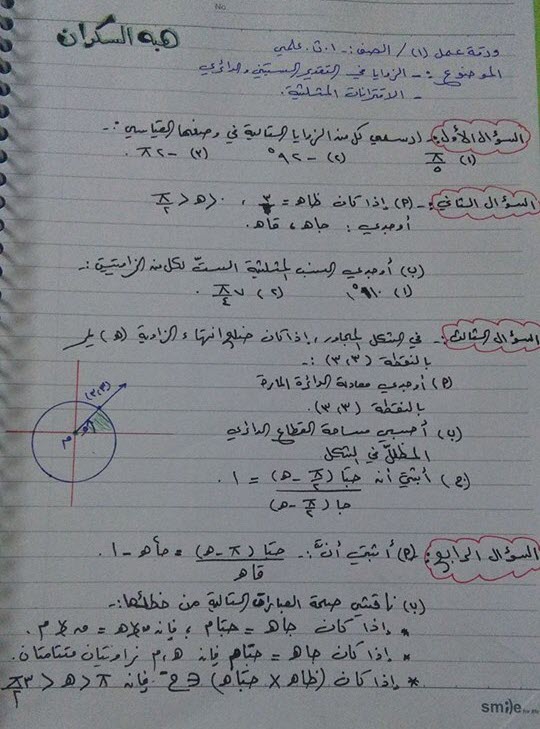 No
هبه السكران
ورقة عمل (١) / الصف :- ١٠ث. علمي
الموضوع :- الزوايا في التقدير الستيني والدائري
- الاقترانات المثلثية.
السؤال الأول :- ارسمي كل من الزوايا التالية في وضعها القياسي :-
(١) π/٥ (٢) -٢٩٠° (٣) -٢π .
السؤال الثاني :- (٢) إذا كان ظاھ = ٣ ، ٠ < ھ < π/٢
أوجدي : جاھ ، قاھ .
(ب) أوجدي النسب المثلثية الست لكل من الزاويتين :-
(٢) ٧π/٤ .
السؤال الثالث :- في الشكل المجاور، إذا كان ضلع انتهاء الزاوية (ھ) يمر
بالنقطة (٣،٣) :-
(٣،٣)
(٢) أوجدي معادلة الدائرة المارة
بالنقطة (٣،٣).
م ھ
(ب) أحسبي مساحة القطاع الدائري
المظلل في الشكل
(ج) أثبتي أن جتا (π/٢ - ھ) / جا (π/٢ - ھ) = ١ .
السؤال الرابع : (٢) أثبتي أنّ :- جتا (π - ھ) / قاھ = جا٢ھ - ١ .
(ب) ناقشي صحة العبارات التالية من خطئها :-
* إذا كان جاھ = جتام ، فإنه
* إذا كان جاھ = جتام فإنه ھ،م زاويتان متتامتان.
* إذا كان (ظاھ × جتاھ) ∋ ح- فإنه π < ھ < ٣π/٢
smile